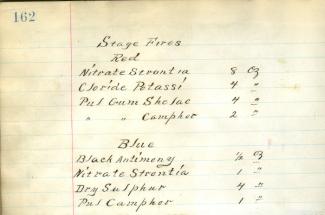 162
Stage Fires
Red
Nitrate Strontia 8 ℥
Cloride Potassi 4 "
Pul Gum Shelac 4 "
" " Camphor 2 "
Blue
Black Antimony ½ ℥
Nitrate Strontia 1 "
Dry Sulphur 4 "
Pul Camphor 1 "